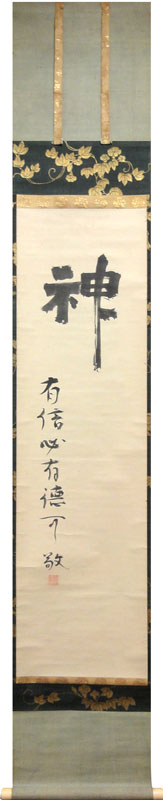 神
有信必有德可敬